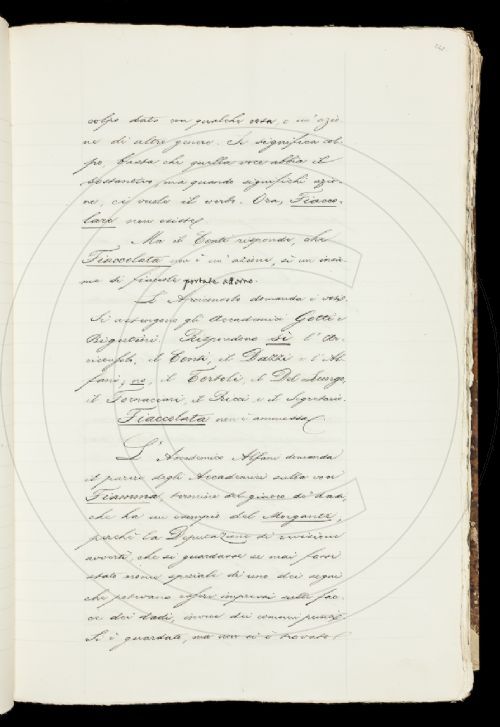 colpo dato con qualche cosa, o un'azio-
ne di altro genere. Se significa col-
po, basta che quella voce abbia il
sostantivo, ma quando significhi azio-
ne, ci vuole il verbo. Ora, Fiacco-
lare non esiste.
Ma il Conti risponde, che
Fiaccolata non è un'azione, sì un insie-
me di fiaccole portate attorno.
L'Arciconsolo domanda i voti.
Si astengono gli Accademici Gotti e
Rigutini. Rispondono sì l'Ar-
ciconsolo, il Conti, il Dazzi e l'Al-
fani; no, il Tortoli, il Del Lungo,
il Fornaciari, il Ricci e il Segretario.
Fiaccolata non è ammessa.
L'Accademico Alfani domanda
il parere degli Accademici sulla voce
Fiamma, termine del giuoco de' dadi,
che ha un esempio del Morgante,
perchè la Deputazione di revisione
avvertì che si guardasse se mai fosse
stato nome speciale di uno dei segni
che potevano essere impressi sulle fac-
ce dei dadi, invece dei comuni punti.
Si è guardato, ma non si è trovato